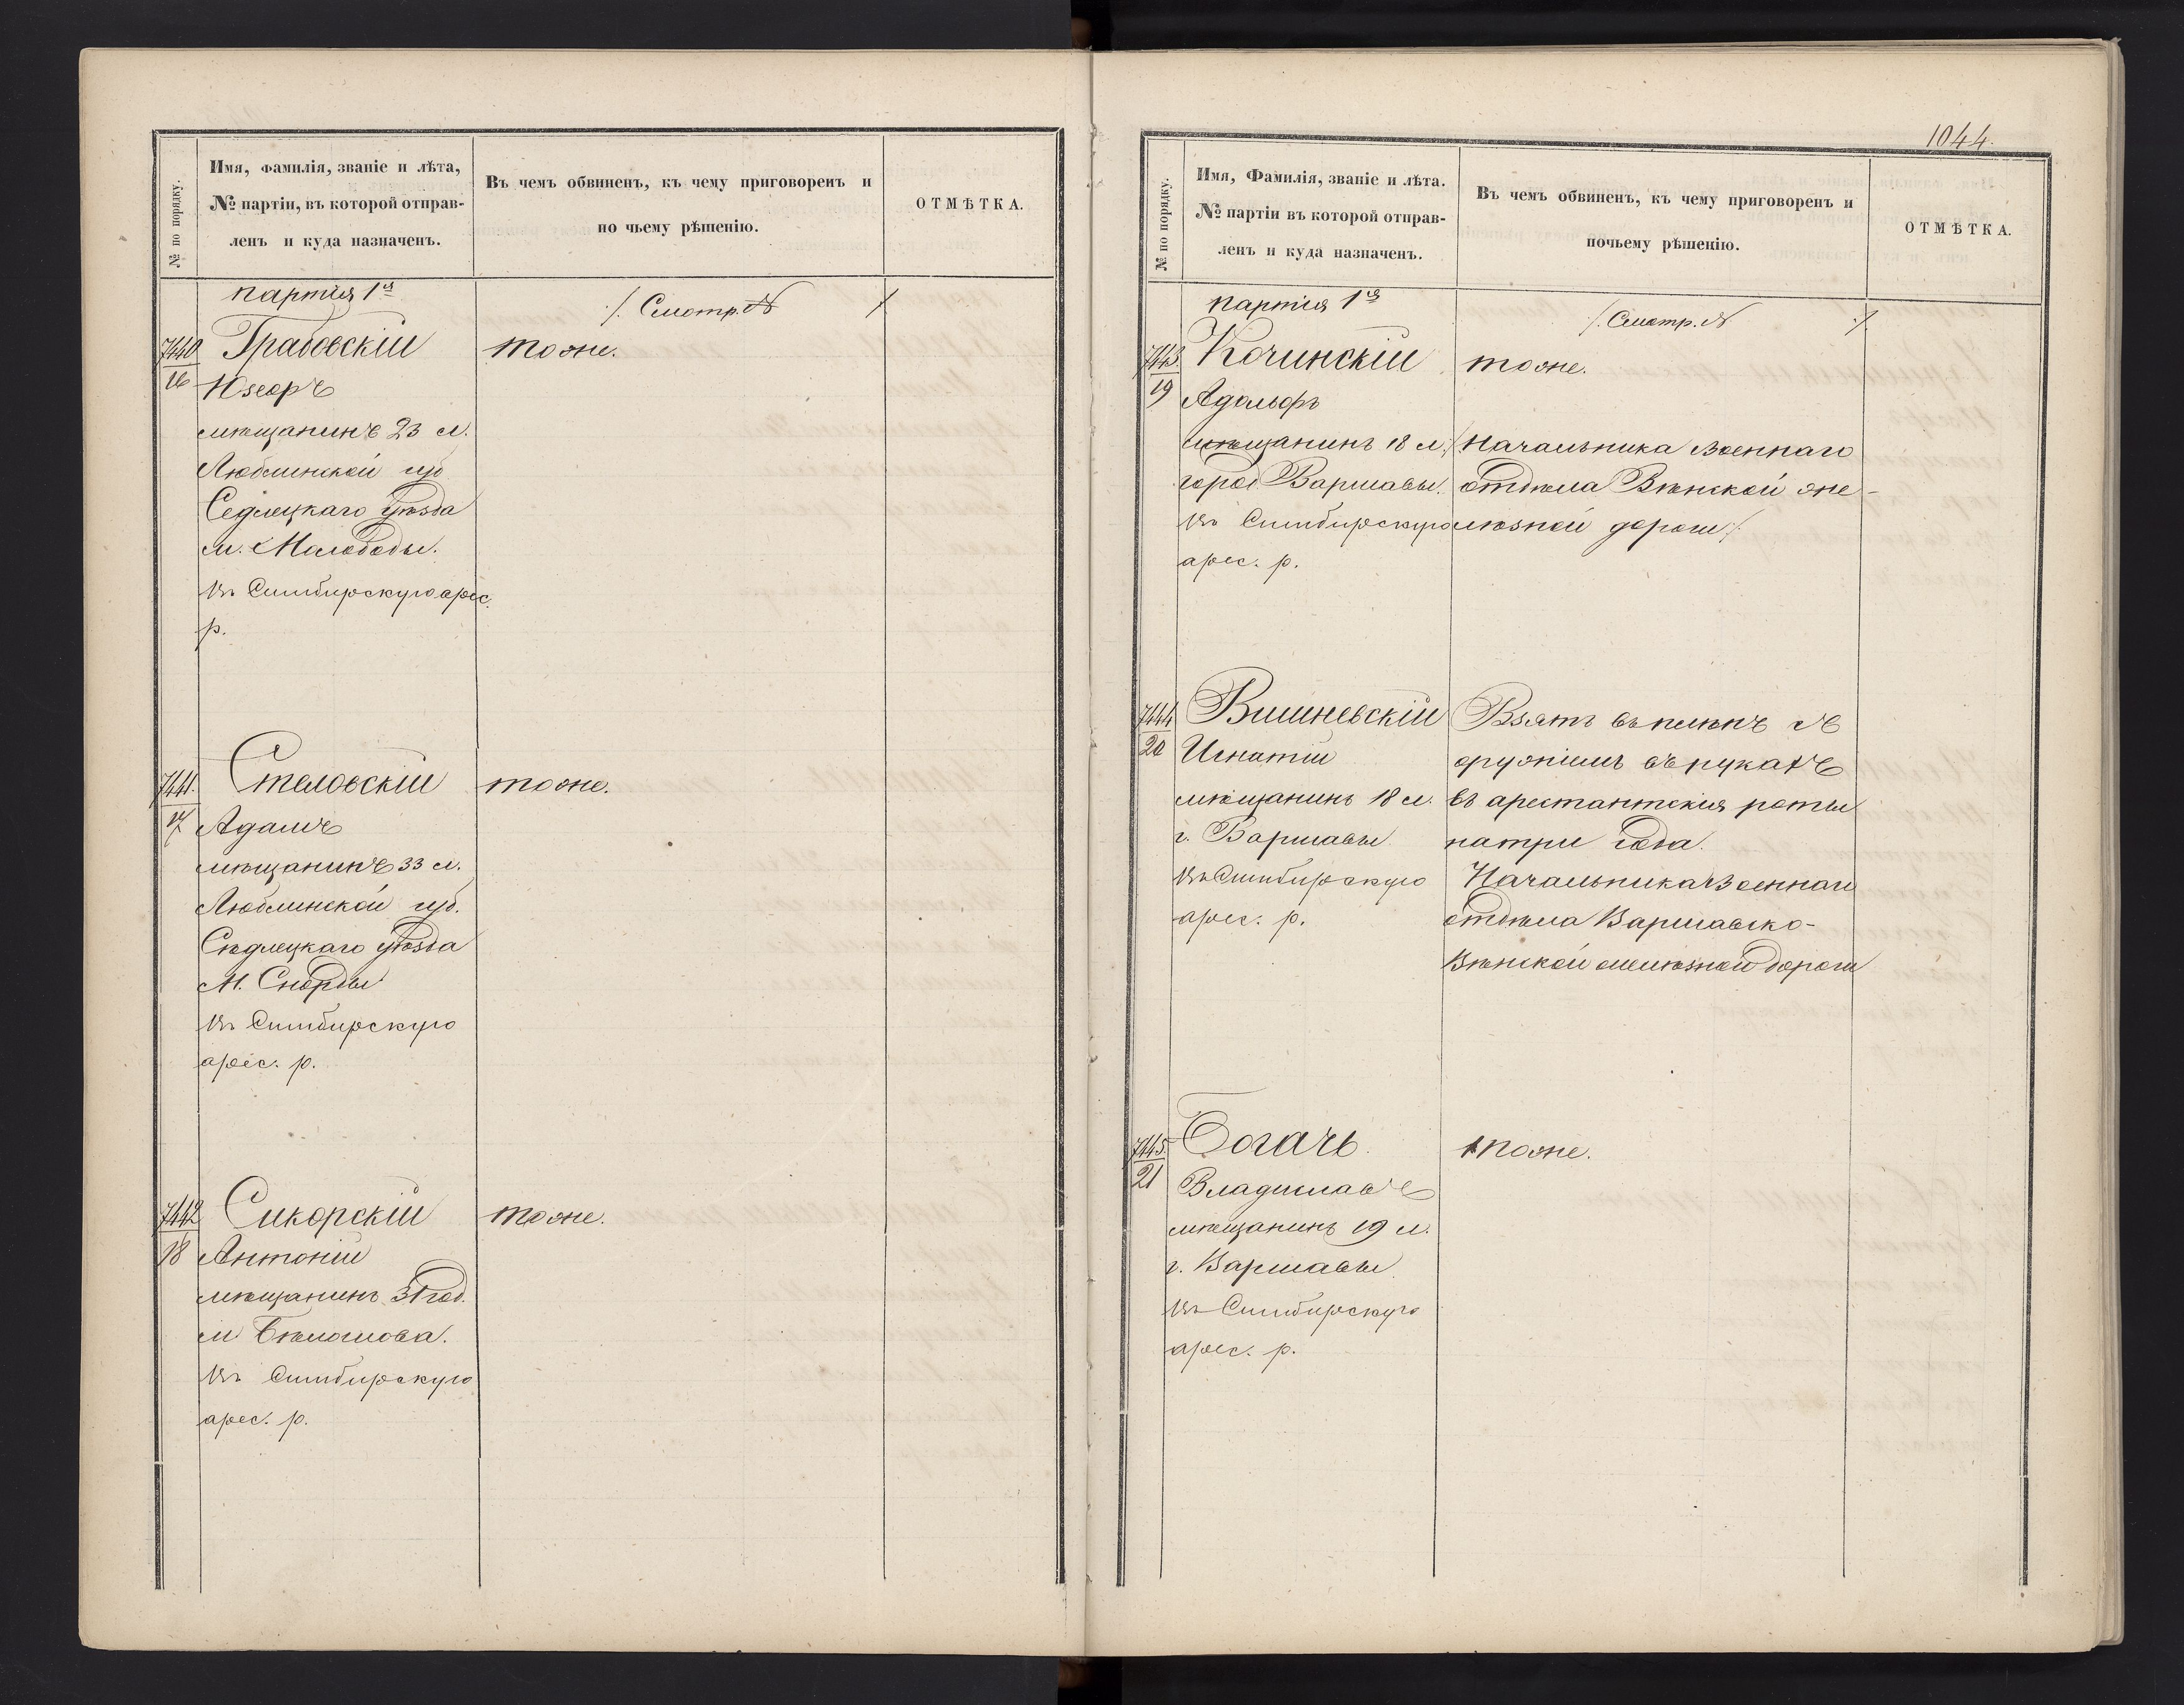 № по порядку.
Имя, фамилія, званіе и лѣта,
№ партіи, въ которой отправ-
ленъ и куда назначенъ.
Въ чемъ обвиненъ, къ чему приговоренъ и
по чьему рѣшенію.
ОТМѢТКА.
партія 1я
/. Смотр. № /
7440
16
Грабовскій
тоже.
Юзефъ
мѣщанинъ 23 л.
Люблинской губ
Седлецкаго уѣзда
м.
въ Симбирскую арес.
р.
7441.
17
Стеловскій
тоже.
Адамъ
мѣщанинъ 33 л.
Люблинской губ.
Сѣдлецкаго уѣзда
м.
въ Симбирскую
арес. р.
7442
18
Сикорскій
тоже.
Антоній
мѣщанинъ 31 год.
м
въ Симбирскую
арес. р.
1044.
№ по порядку.
Имя, Фамилія, званіе и лѣта.
№ партіи въ которой отправ-
ленъ и куда назначенъ.
Въ чемъ обвиненъ, къ чему приговоренъ и
почьему рѣшенію.
ОТМѢТКА.
партія 1я
/. Смотр. № ./
7443.
19
Кочинскій
тоже.
Адольфъ
мѣщанинъ 18 л.
город Варшавы.
въ Симбирскую
арес. р.
/Начальника Военнаго
отдѣла Вѣнской же-
лѣзной дороги/.
7444
20
Вишневскій
Игнатій
мѣщанинъ 18 л.
г. Варшавы
въ Симбирскую
арес. р.
Взятъ въ плѣнъ съ
оружіемъ въ рукахъ
въ арестантскія роты
на три года.
Начальника Военнаго
отдѣла Варшавско-
Вѣнской желѣзной дороги
7445.
21
Богачъ.
тоже.
Владиславъ
мѣщанинъ 19 л.
г. Варшавы
въ Симбирскую
арес. р.